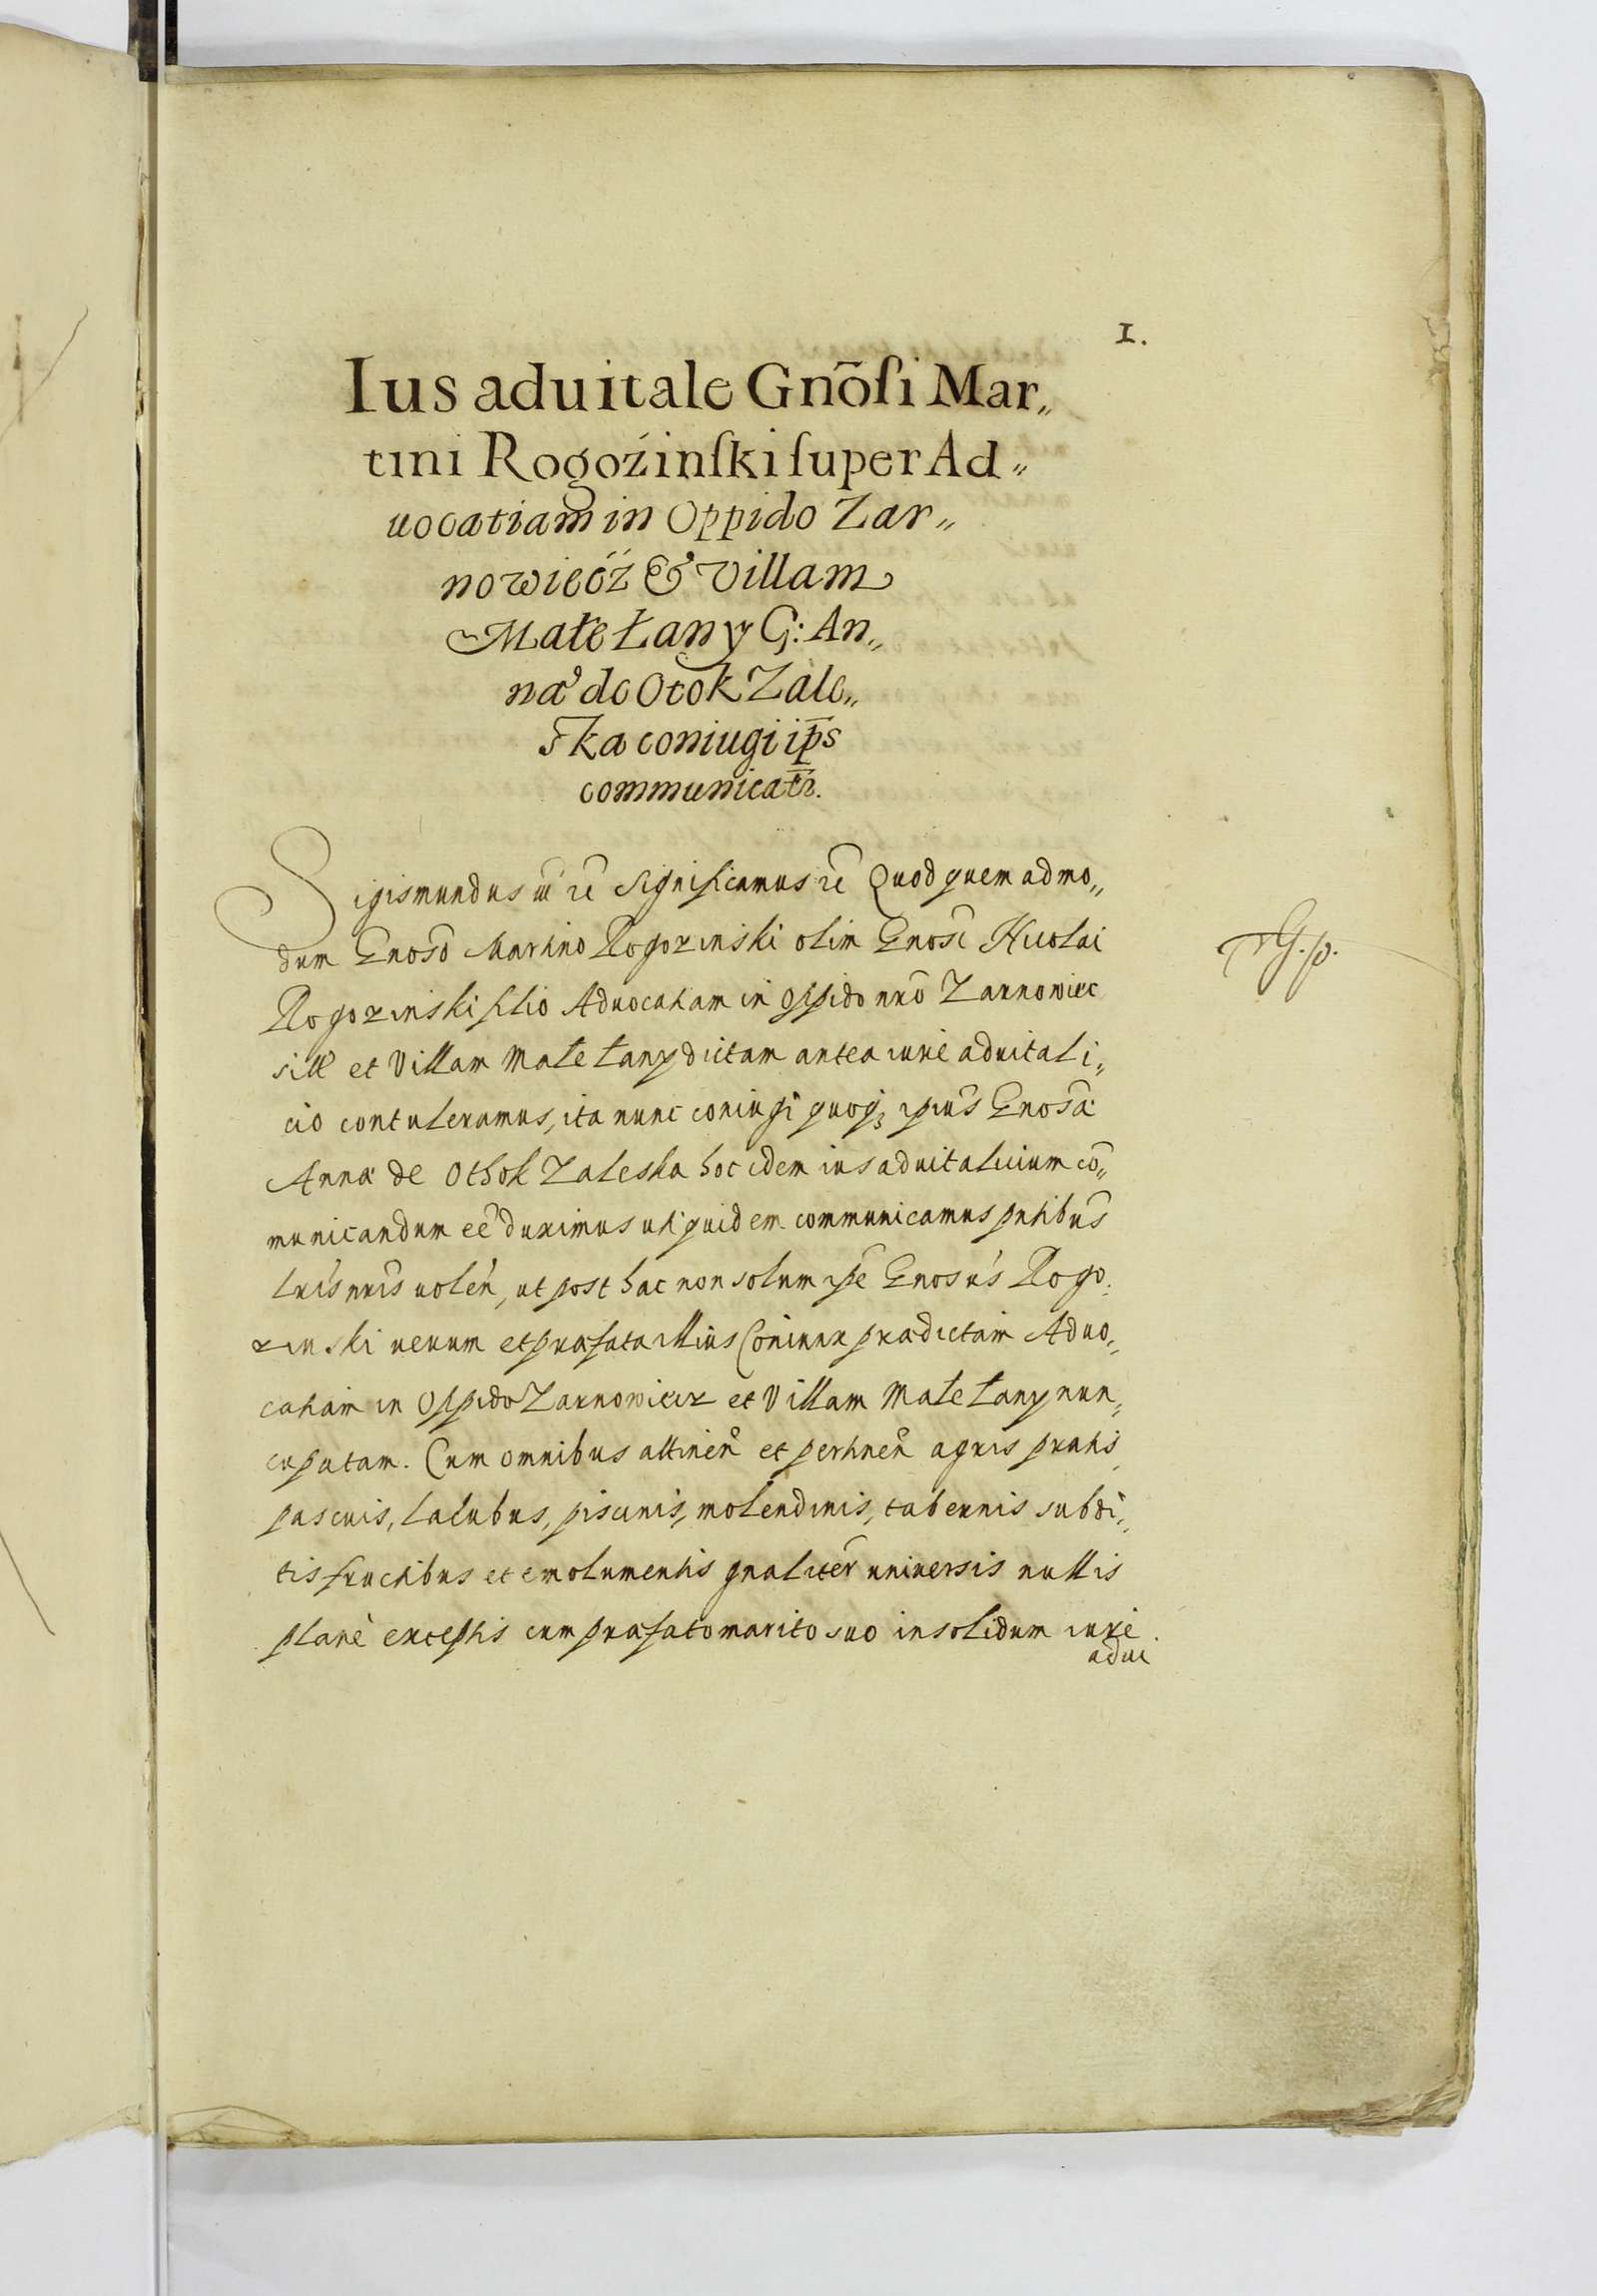 1.
Ius aduitale Gnōſi Mar„
tini Rogoźinſki ſuper Ad„
uocatiam in Oppido Zar„
nowiecź & Villam
Małe Łany G: An„
na de Otok Zale„
ſka coniugi ip̄s
communicatr̄.
Sigismundus III rē Significamus rē Quod quem admo„
dum Gnoso Martino Rogozinski olim Gnosi Nicolai
Rogozinski filio Aduocatiam in oppido nrō Zarnowiec
sitā et Villam Małe Łany dictam antea iure aduitali„
cio contuleramus, ita nunc coniugi quoq₃ ipius Gnosā
Anna de Othok Zaleska hoc idem ius aduitalicium cō„
municandum eē duximus uti quidem communicamus pntibus
lrisnris uolen, ut post hac non solum ipē Gnosus Rogo„
zinski uerum et præfata illius Coniunx prædictam Aduo„
catiam in Oppido Zarnowiecz et Villam Małe Łany nun„
cupatam. Cum omnibus attinen et pertinen agris pratis
pascuis, lacubus, piscinis, molendinis, tabernis subdi„
tis fructibus et emolumentis gnaliter uniuersis nullis
planè exceptis cum præfato marito suo in solidum iure
adui